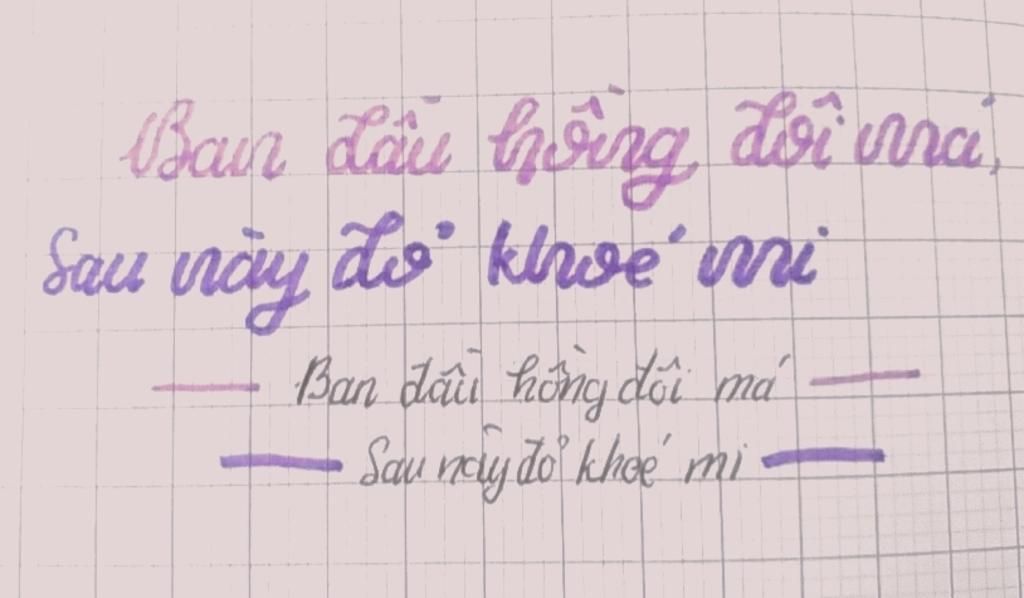 Ban đầu hồng đôi má,
Sau này đỏ khoé mi
Ban đầu hồng đôi má
Sau này đỏ khoé mi